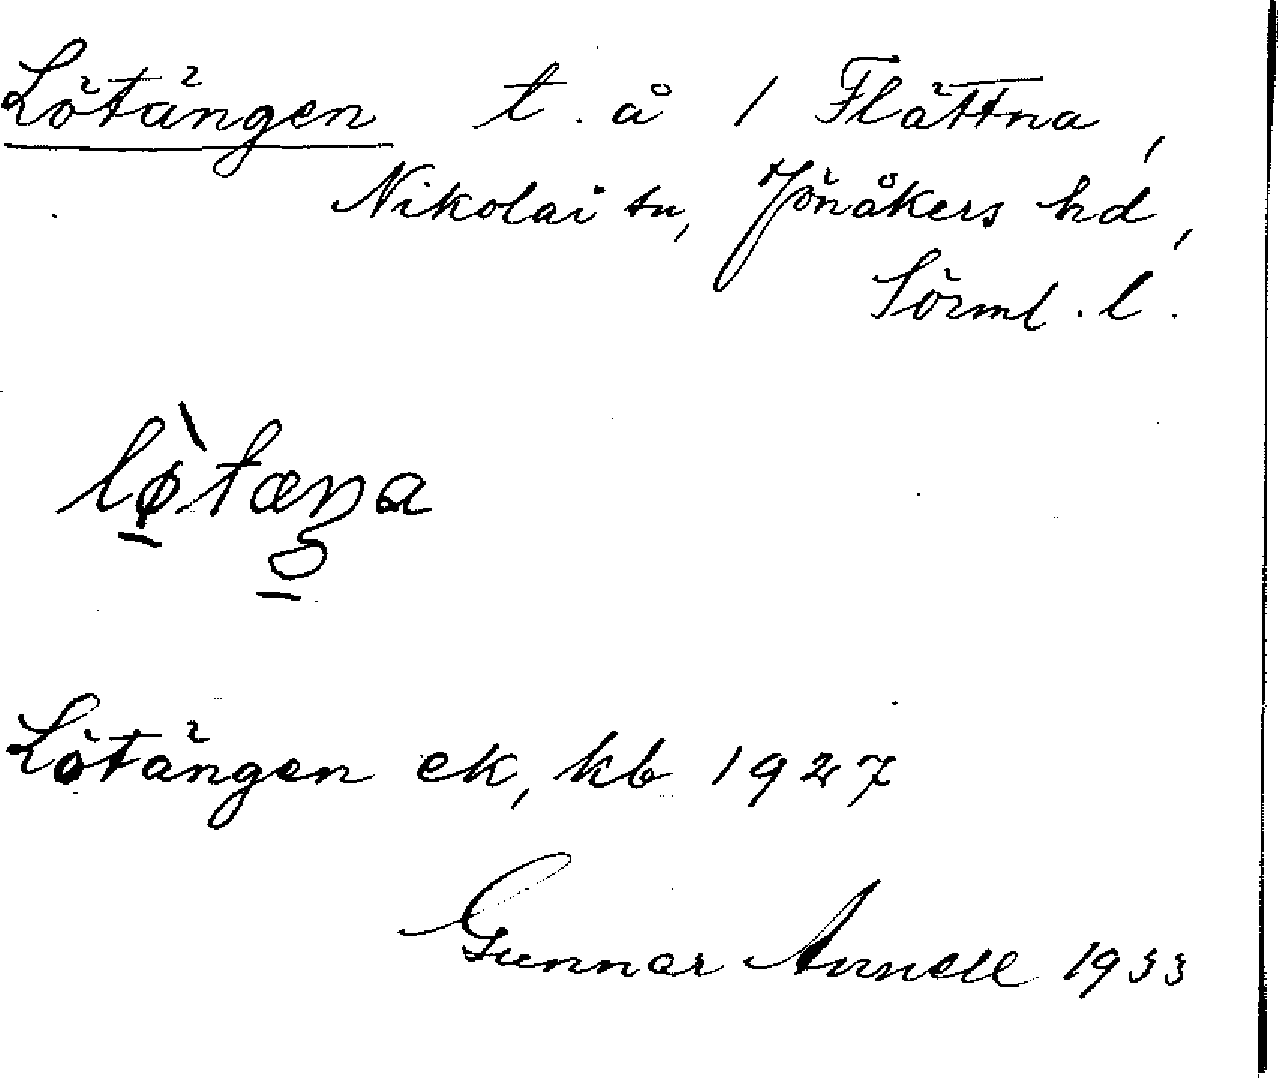 Lötängen t. å 1 Flättna,
Nikolai sn, Jönåkers hd,
Sörml. l.
lø̀tæŋa
Lötängen ek, kb 1927
Gunnar Annell 1933